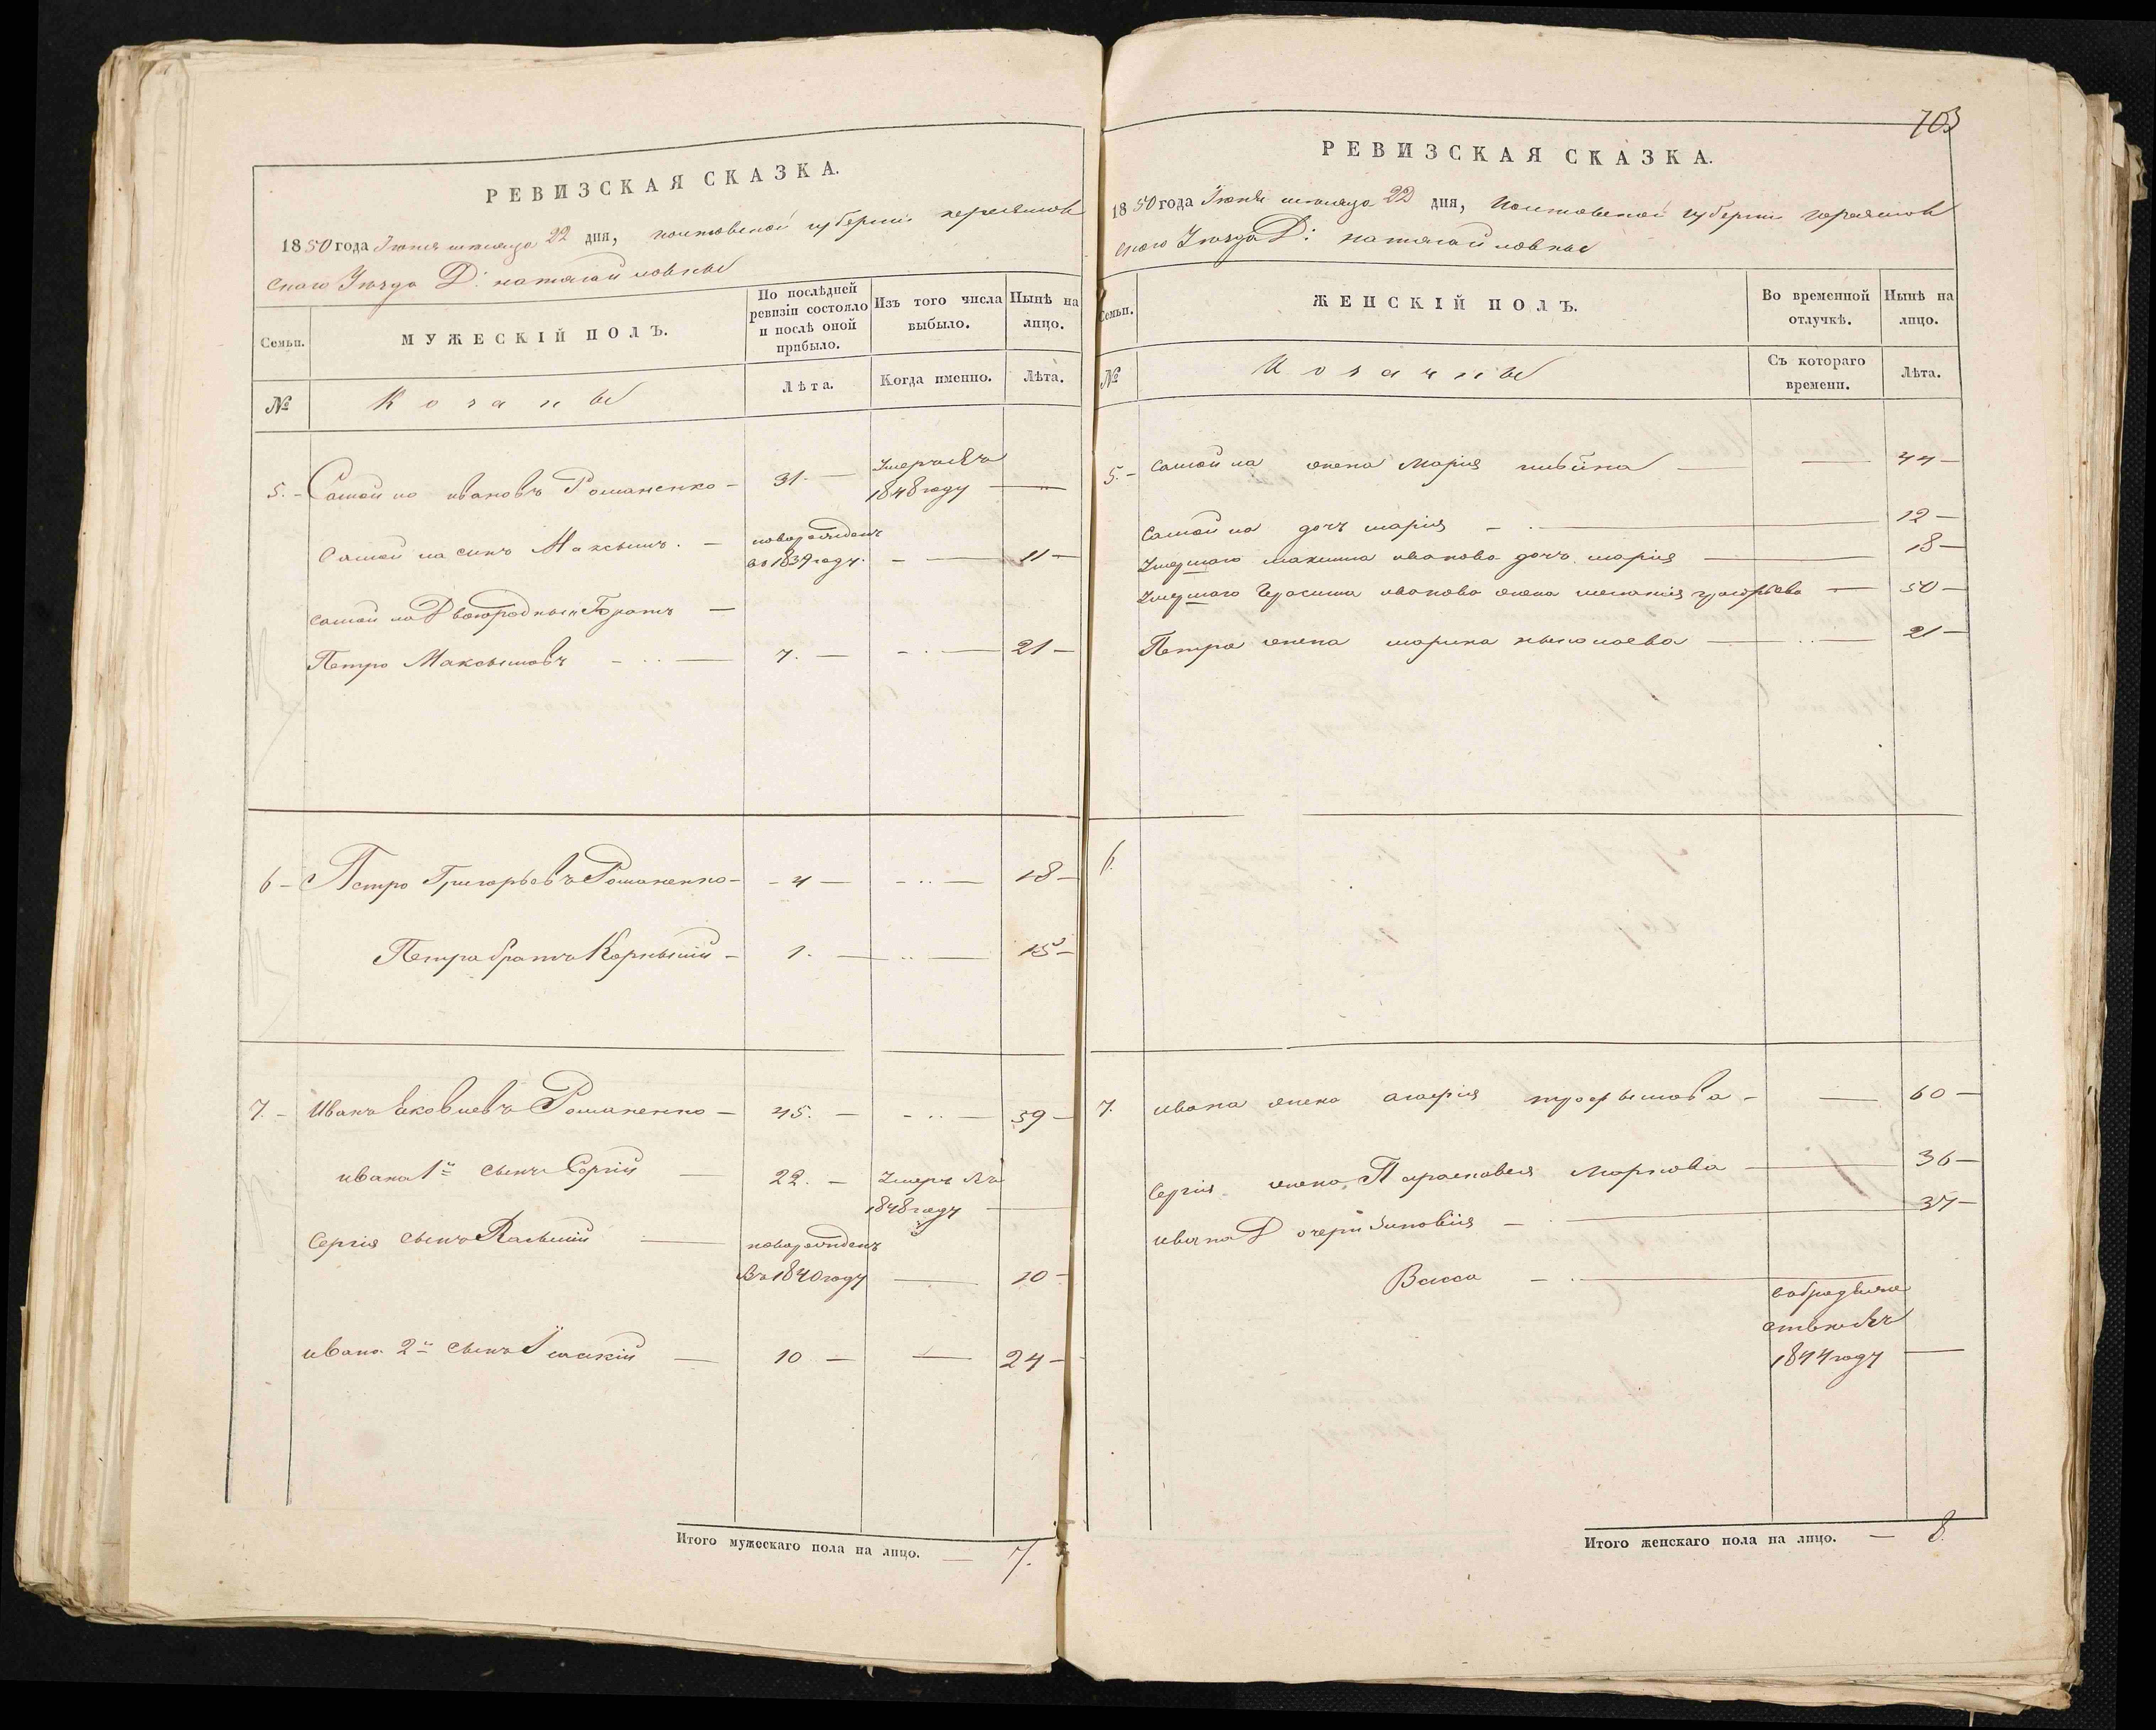 РЕВИЗСКАЯ СКАЗКА.
1850 года Іюня месяца 22 дня, полтавской губерніи переяслов
скаго Уезда Д:
Семьи.
МУЖЕСКІЙ ПОЛЪ.
По послѣдней ревизіи состояло и послѣ оной прибыло.
Изъ того числа выбыло.
Нынѣ на лицо.
№
Козаки
Лѣта.
Когда именно.
Лѣта.
5. - Самойло ивановъ Романенко - 31. -
Умеръ въ
1848 году
Самойла сынъ Максымъ. -
новорожденъ
въ 1839 году. - 11 -
самойла Двоюродный Братъ -
Петро Максымовъ - 7. - 21 -
6 - Петро Григорьевъ Романенко - 4 - 18 -
Петра братъ Корнылій - 1. - 15 -
7. - Иванъ Яковлевъ Романенко - 45. - 59 -
ивана 1й сынъ Сергій - 22. - Умеръ въ
1848 году
Сергія сынъ
новорожденъ
Въ 1840 году - 10 -
ивана 2й сынъ - 10 - 24 -
Итого мужескаго пола на лицо. - 7.
703
РЕВИЗСКАЯ СКАЗКА.
1850 года Іюня месяца 22 дня, полтавской губерніи переяслов
скаго Уезда Д:
Семьи.
ЖЕНСКІЙ ПОЛЪ.
Во временной отлучкѣ.
Нынѣ на лицо.
№
Козачки
Съ котораго времени.
Лѣта.
5. - Самойла жена Марія - 44 -
Самойла дочъ марія - 12 -
Умершаго максима иванова дочъ марія - 18 -
Умершаго Герасима иванова жена меланія григорьева - 50 -
Петра жена марина николаева - 21 -
6.
7. ивана жена агафія трофымова - 60 -
Сергія жена Парасковея Маркова - 36 -
ивана Дочери Зиновія - 37 -
Васса -
1844 году
Итого женскаго пола на лицо. - 8.